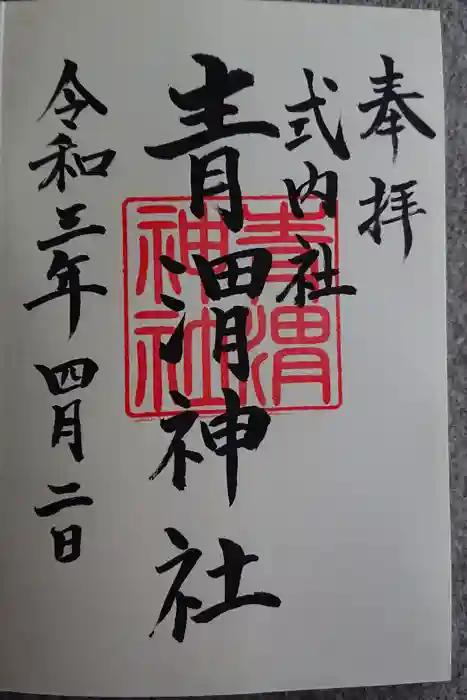 奉拝
式内社
青渭神社
令和三年四月二日
青渭
神社